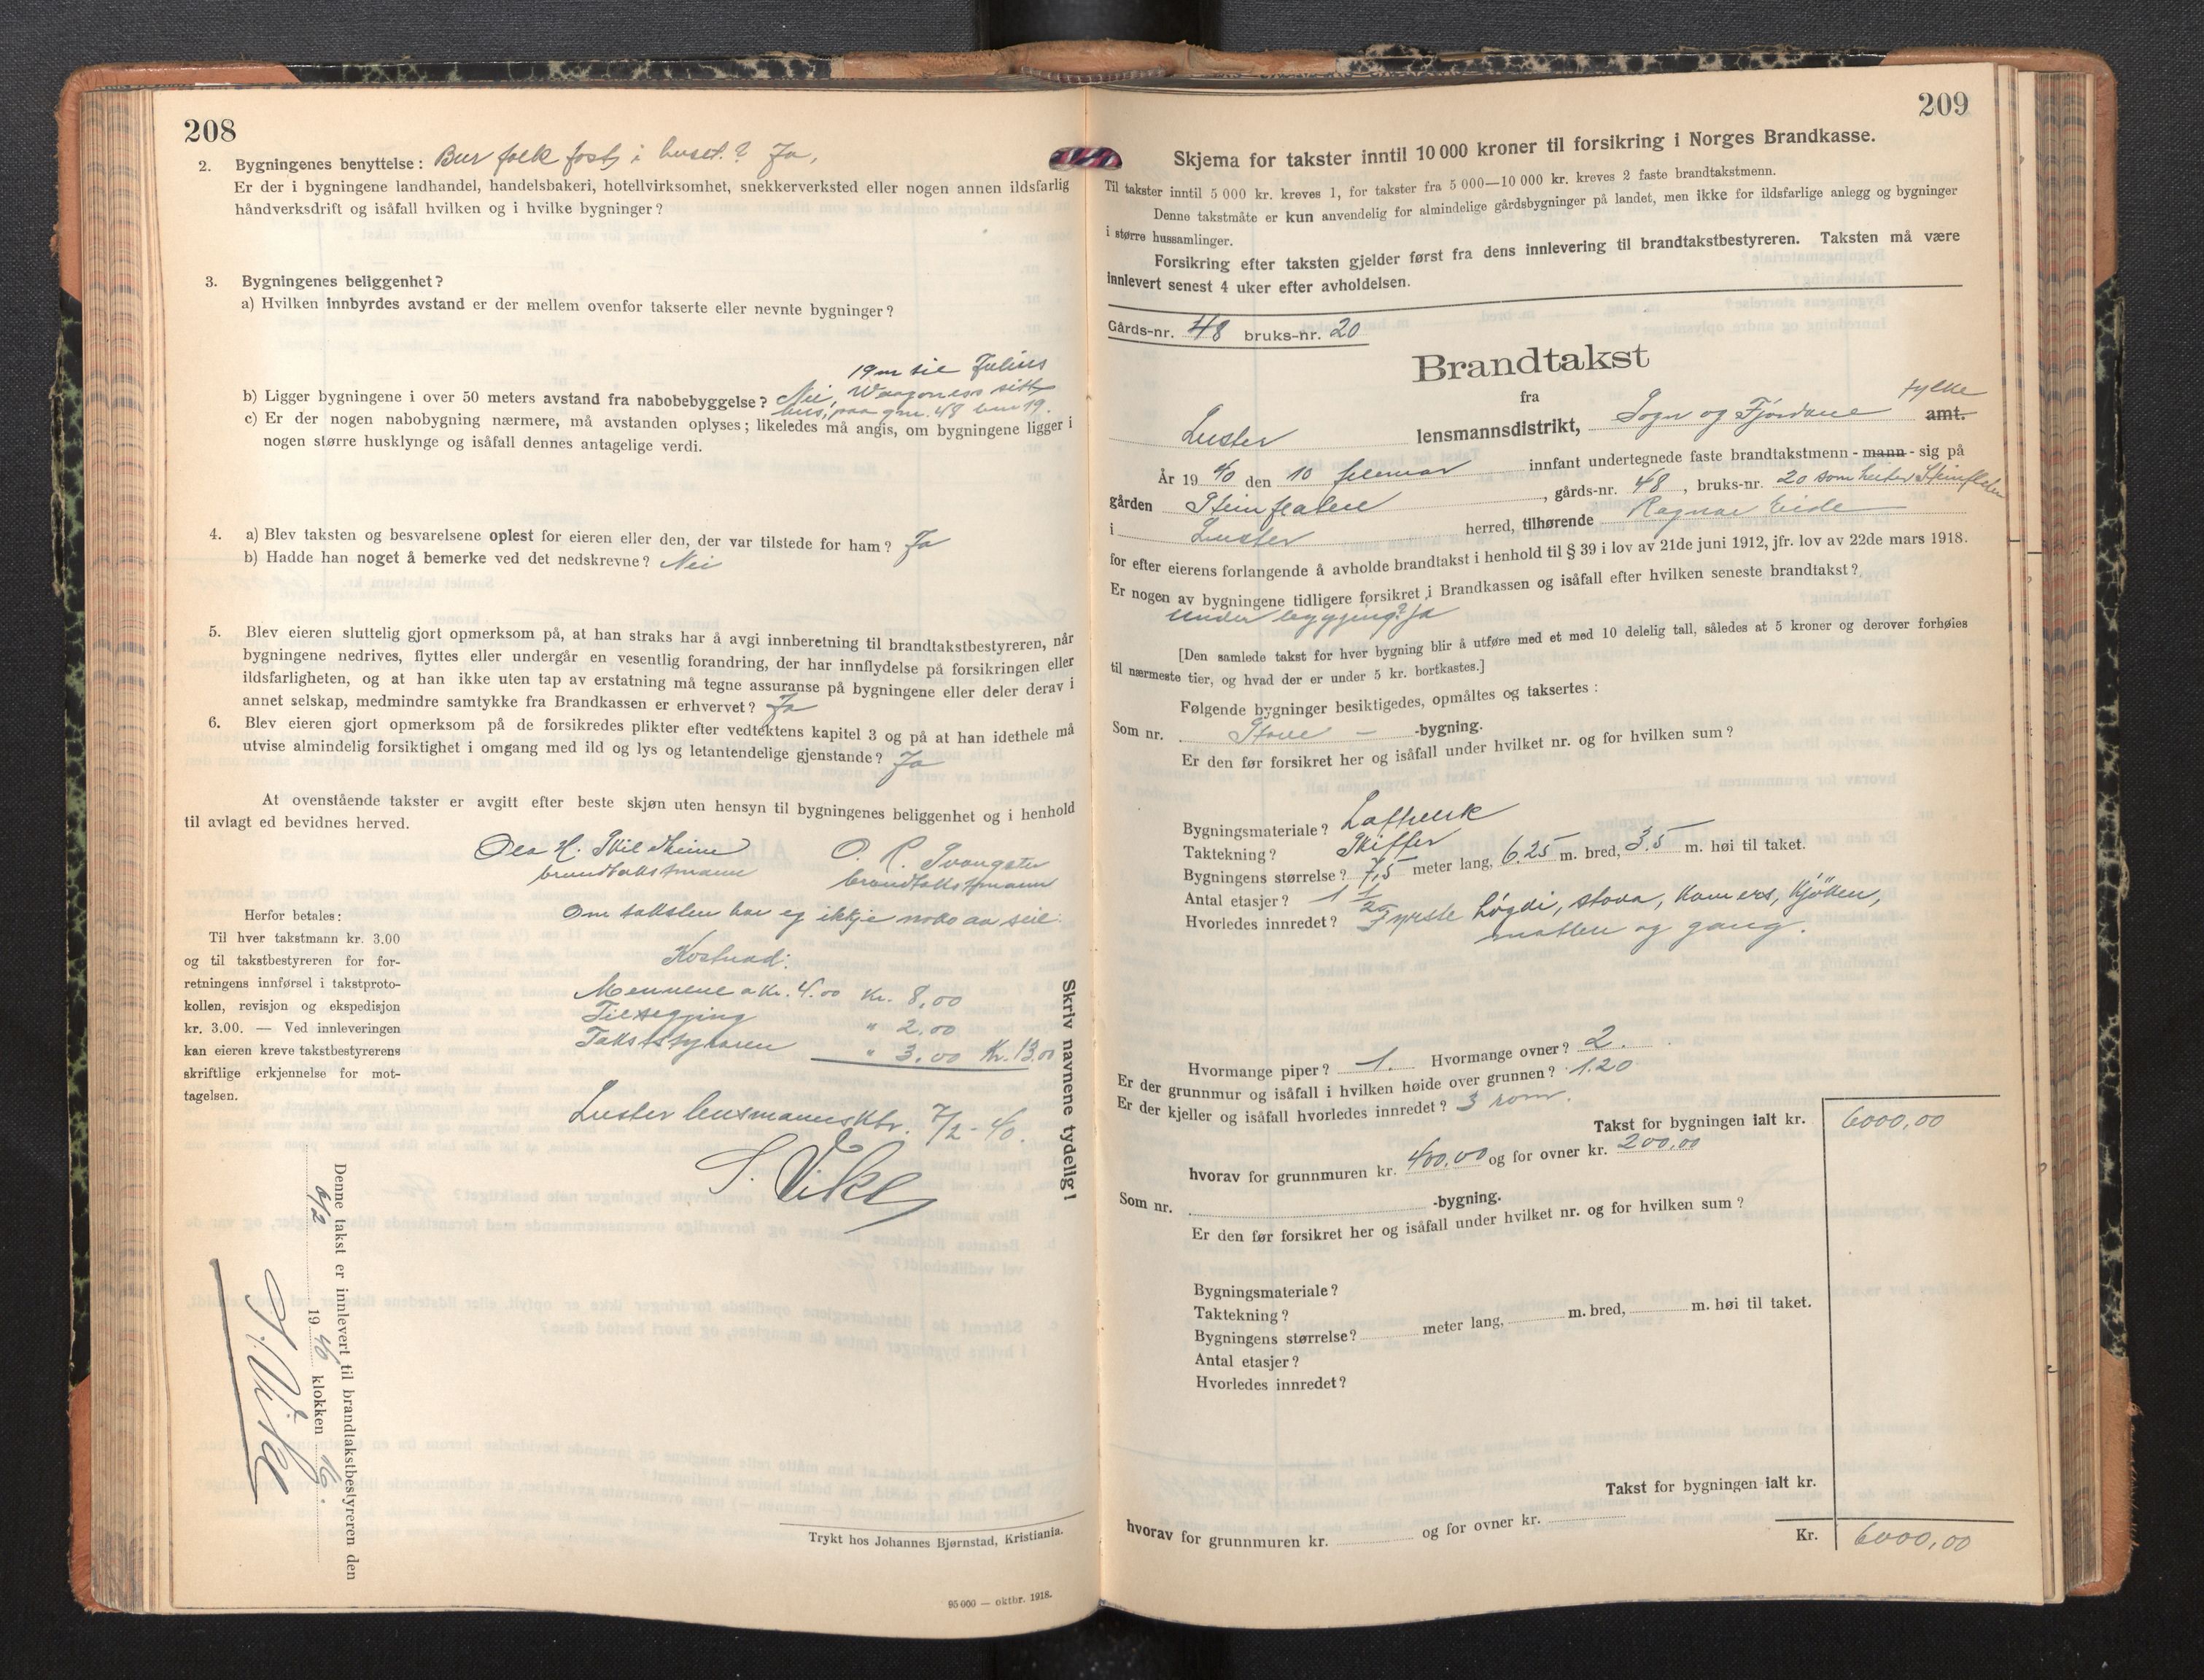 208
2. Bygningenes benyttelse: Bur folk fast i huset? Ja,
Er der i bygningene landhandel, handelsbakeri, hotellvirksomhet, snekkerverksted eller nogen annen ildsfarlig
håndverksdrift og isåfall hvilken og i hvilke bygninger?
3. Bygningenes beliggenhet?
a) Hvilken innbyrdes avstand er der mellem ovenfor takserte eller nevnte bygninger?
19 m til Julius
b) Ligger bygningene i over 50 meters avstand fra nabobebyggelse? Nei, sitt
hus, paa gnr. 48 bnr 19.
c) Er der nogen nabobygning nærmere, må avstanden oplyses; likeledes må angis, om bygningene ligger i
nogen større husklynge og isåfall dennes antagelige verdi.
4. a) Blev taksten og besvarelsene oplest for eieren eller den, der var tilstede for ham? Ja
b) Hadde han noget å bemerke ved det nedskrevne? Nei
5. Blev eieren sluttelig gjort opmerksom på, at han straks har å avgi innberetning til brandtakstbestyreren, når
bygningene nedrives, flyttes eller undergår en vesentlig forandring, der har innflydelse på forsikringen eller
ildsfarligheten, og at han ikke uten tap av erstatning må tegne assuranse på bygningene eller deler derav i
annet selskap, medmindre samtykke fra Brandkassen er erhvervet? Ja
6. Blev eieren gjort opmerksom på de forsikredes plikter efter vedtektens kapitel 3 og på at han idethele må
utvise almindelig forsiktighet i omgang med ild og lys og letantendelige gjenstande? Ja
At ovenstående takster er avgitt efter beste skjøn uten hensyn til bygningenes beliggenhet og i henhold
til avlagt ed bevidnes herved.
Ola H. Skildheim O. R.
brandtakstmann brandtakstmann
Om taksten har eg ikkje noko aa seie.
Herfor betales:
Til hver takstmann kr. 3.00
og til takstbestyreren for for-
retningens innførsel i takstproto-
kollen, revisjon og ekspedisjon
kr. 3.00. — Ved innleveringen
kan eieren kreve takstbestyrerens
skriftlige erkjennelse for mot-
tagelsen.
Kostnad:
Mennene a kr. 4.00 kr. 8,00
Tilsegjing " 2.00
Takststyraren " 3.00 Kr. 13.00
Luster lensmannsktr. 7/2-40.
S. Vike
Skriv navnene tydelig!
Denne takst er innlevert til brandtakstbestyreren den
6/2 1940 klokken 16.
S. Vike
Trykt hos Johannes Bjørnstad, Kristiania.
95 000 — oktbr. 1918.
209
Skjema for takster inntil 10 000 kroner til forsikring i Norges Brandkasse.
Til takster inntil 5 000 kr. kreves 1, for takster fra 5 000—10 000 kr. kreves 2 faste brandtakstmenn.
Denne takstmåte er kun anvendelig for almindelige gårdsbygninger på landet, men ikke for ildsfarlige anlegg og bygninger
i større hussamlinger.
Forsikring efter taksten gjelder først fra dens innlevering til brandtakstbestyreren. Taksten må være
innlevert senest 4 uker efter avholdelsen.
Gårds-nr. 48 bruks-nr. 20
Brandtakst
fra
fylke
Luster lensmannsdistrikt, Sogn og Fjordane amt.
År 1940 den 10 februar innfant undertegnede faste brandtakstmenn - mann - sig på
gården Steinflaten, gårds-nr. 48, bruks-nr. 20 som heiter Steinflaten
i Luster herred, tilhørende Ragnar Eide
for efter eierens forlangende å avholde brandtakst i henhold til § 39 i lov av 21de juni 1912, jfr. lov av 22de mars 1918.
Er nogen av bygningene tidligere forsikret i Brandkassen og isåfall efter hvilken seneste brandtakst?
Under bygging? Ja
[Den samlede takst for hver bygning blir å utføre med et med 10 delelig tall, således at 5 kroner og derover forhøies
til nærmeste tier, og hvad der er under 5 kr. bortkastes.]
Følgende bygninger besiktigedes, opmåltes og taksertes:
Som nr. Stove - -bygning.
Er den før forsikret her og isåfall under hvilket nr. og for hvilken sum?
Bygningsmateriale? Laftverk
Taktekning? Skiffer
Bygningens størrelse? 7,5 meter lang, 6.25 m. bred, 3.5 m. høi til taket.
Antal etasjer? 1 1/2
Hvorledes innredet? Fyrste høgdi, stova, kamers, kjøken,
matbu og gang.
Hvormange piper? 1. Hvormange ovner? 2.
Er der grunnmur og isåfall i hvilken høide over grunnen? 1.20
Er der kjeller og isåfall hvorledes innredet? 3 rom.
Takst for bygningen ialt kr. 6000,00
hvorav for grunnmuren kr. 400,00 og for ovner kr. 200,00
Som nr. -bygning.
Er den før forsikret her og isåfall under hvilket nr. og for hvilken sum?
Bygningsmateriale?
Taktekning?
Bygningens størrelse? meter lang, m. bred, m. høi til taket.
Antal etasjer?
Hvorledes innredet?
Takst for bygningen ialt kr.
hvorav for grunnmuren kr. og for ovner kr.
Kr. 6000,00